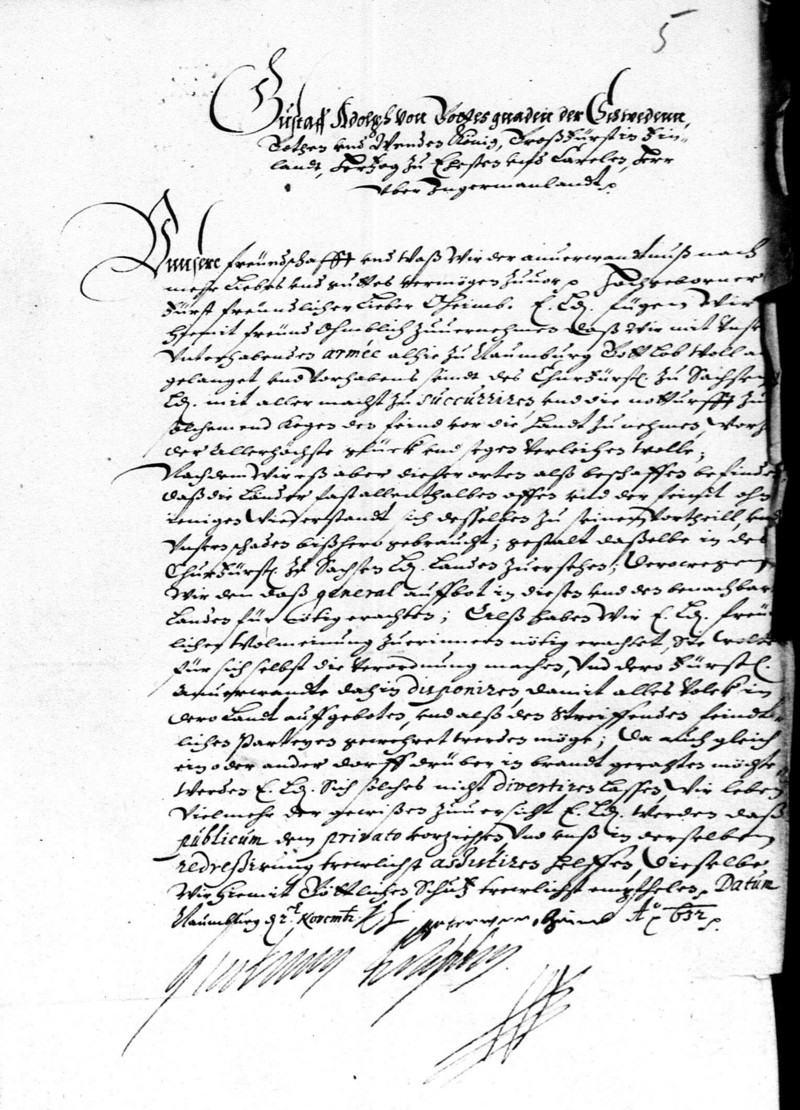 5
Gustaff Adolph von Gottes gnaden der Schwedenn,
Gothen und Wenden König, Großfürst in Fin-
landt, Hertzog zu Ehesten und Carelen, Herr
uber Ingermanlandt
Unnsere freundschafft und waß wir der anverwandtnuß nach
mehr liebes und guttes vermögen zuvor Hochgeborner
Fürst freundlicher lieber Oheimb. E. Ld. fügen wir
hiemit freund Ohmblich zuvernehmen, daß wir mit
unterhabenden armée alhie zu Naumburg Gott lob woll
gelanget, und vorhabens seindt des Churfürstl. zu Sachsen
Ld. mit aller macht zu succurriren und die notturfft zu
kegen den feind vor die handt zu nehmen,
der Allerhöchste glück und segen verleihen wolle;
Nachdem wir eß aber dieser orten alß beschaffen befinden
daß die länder fast allenthalben offen und der feindt
einigen wiederstandt sich desselben zu seinem vortheill, und
unserm schaden bißhero gebraucht; gestalt dasselbe in des
Churfürstl. zu Sachsen Ld. landen zuersehen; derowegen
wir den daß general auffbot in diesen und den benachbar
landen für nötig erachten; Alß haben wir E. Ld.
licher wolmeinung zuerinnern nötig erachtet, Sie wolle
für sich selbst die verordnung machen, und dero Fürstl.
Anverwandte dahin disponiren, damit alles volck in
dero landt auffgeboten, und alß den streiffenden feindt
lichen Parteyen gewehret werden möge; Da auch gleich
ein oder ander dorff drüber in brandt gerahten möchte
werden E. Ld. sich solches nicht divertiren lassen, wir leben
vielmehr der gewißen zuversicht E. Ld. werden daß
publicum dem privato vorziehen und unß in derselben
redressirung trewlichst assistiren helffen, Dieselbe
wir hiemit Göttlichen Schutz trewlichst empfehlen. Datum
Naumburg d. 2. Novemb. Ao. 1632
Gustavus Adolphus